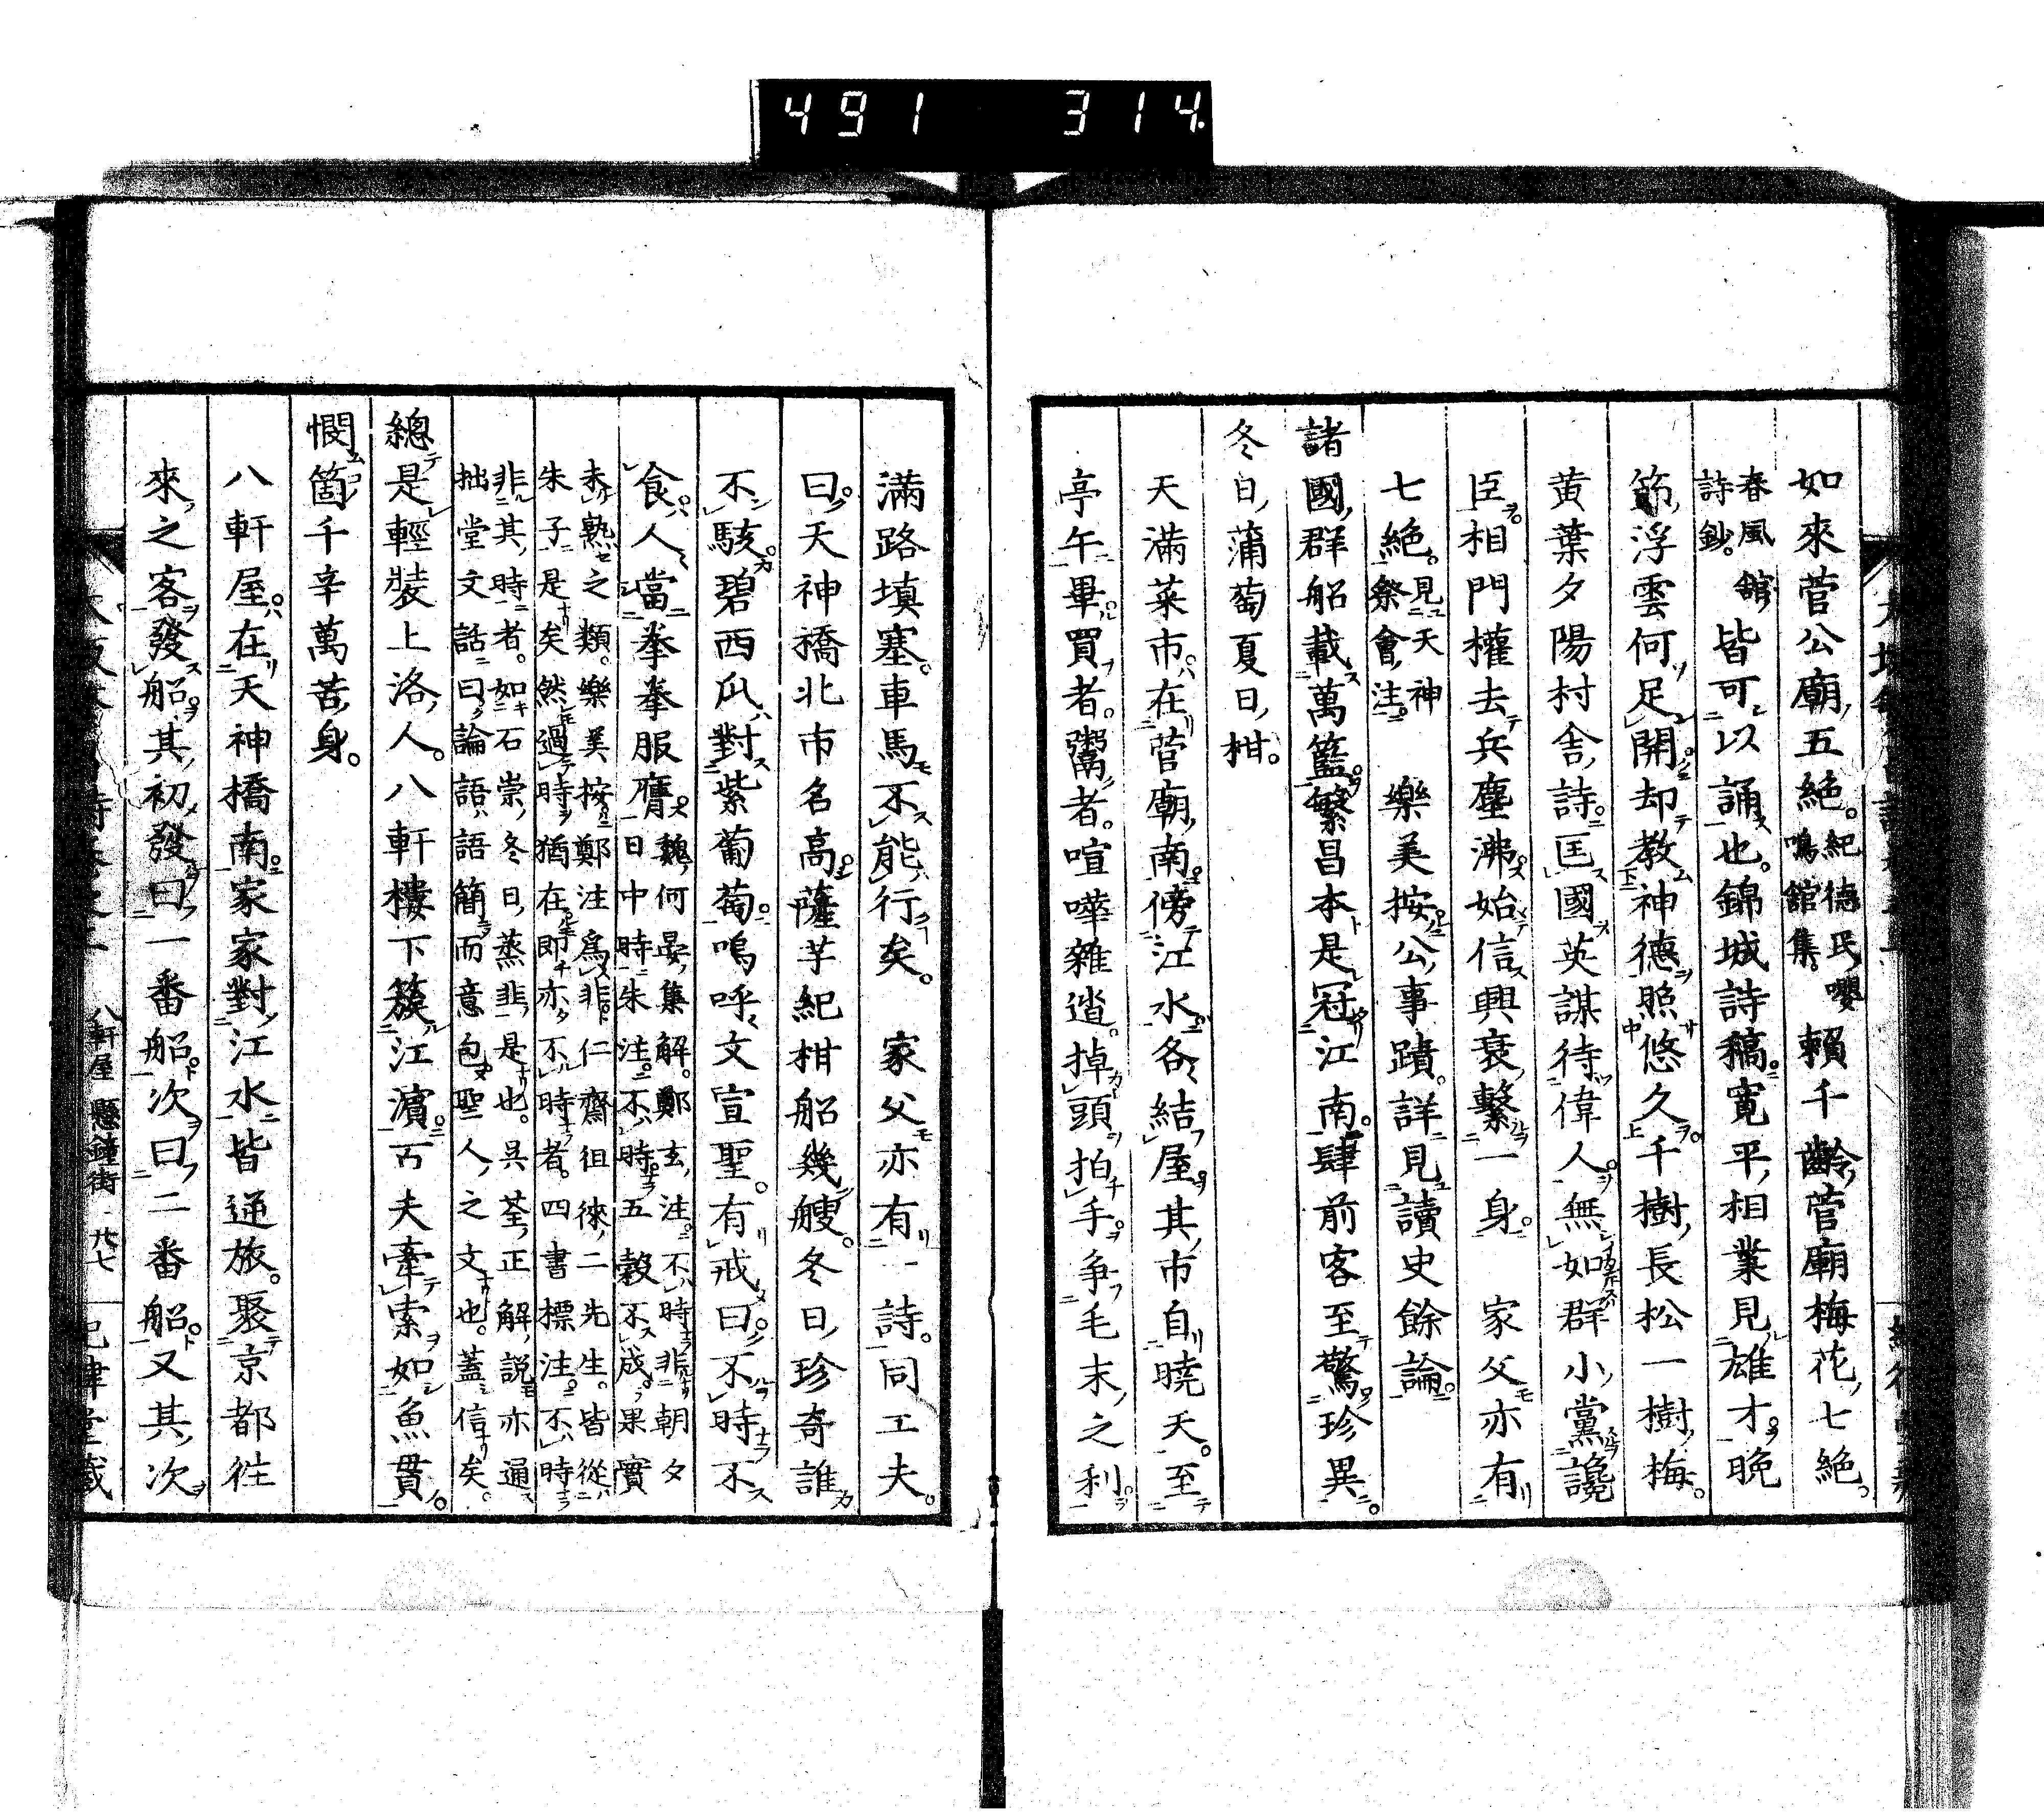 491 314
如來菅公廟五絶。紀德民嚶鳴館集。賴千齡菅廟梅花七絶。
春風館詩鈔。皆可以誦也。錦城詩稿。寛平相業見雄才。晚
節浮雲何足開。却教神德照悠久。千樹長松一樹梅。
黄葉夕陽村舍詩。匡國英謀待偉人。無如群小黨讒
臣。相門權去兵塵沸。始信興衰繫一身。家父亦有
七絶。見天神祭會注。樂美按。公事蹟。詳見讀史餘論。
諸國群船載萬籃。繁昌本是冠江南。肆前客至驚珍異。
冬日蒲萄夏日柑。
天滿菜市。在菅廟南。傍江水。各結屋。其市自曉天。至
亭午畢。買者。鬻者。喧嘩雜遝。掉頭拍手。争毛末之利。
滿路填塞。車馬不能行矣。家父亦有一詩。同工夫。
曰。天神橋北市名高。薩芋紀柑船幾艘。冬日珍奇誰
不駭。碧西瓜對紫葡萄。嗚呼文宣聖。有戒曰。不時不
食。人當拳拳服膺。魏何晏集解。鄭玄注。不時非朝夕日中時。朱注。不時。五穀不成。果實
未熟之類。樂美按。鄭注爲非。仁齋徂徠二先生。皆從朱子。是矣。然過時猶在。即亦不時者。四書標注。不時
非其時者。如石崇冬日蒸韭是也。呉荃正解説亦通。拙堂文話曰。論語語簡而意包。聖人之文也。蓋信矣。
總是輕裝上洛人。八軒樓下簇江濱。百夫牽索如魚貫。
憫箇千辛萬苦身。
八軒屋。在天神橋南。家家對江水。皆逆旅。聚京都往
來之客發船。其初發曰一番船。次曰二番船。又其次
八軒屋 懸鐘街